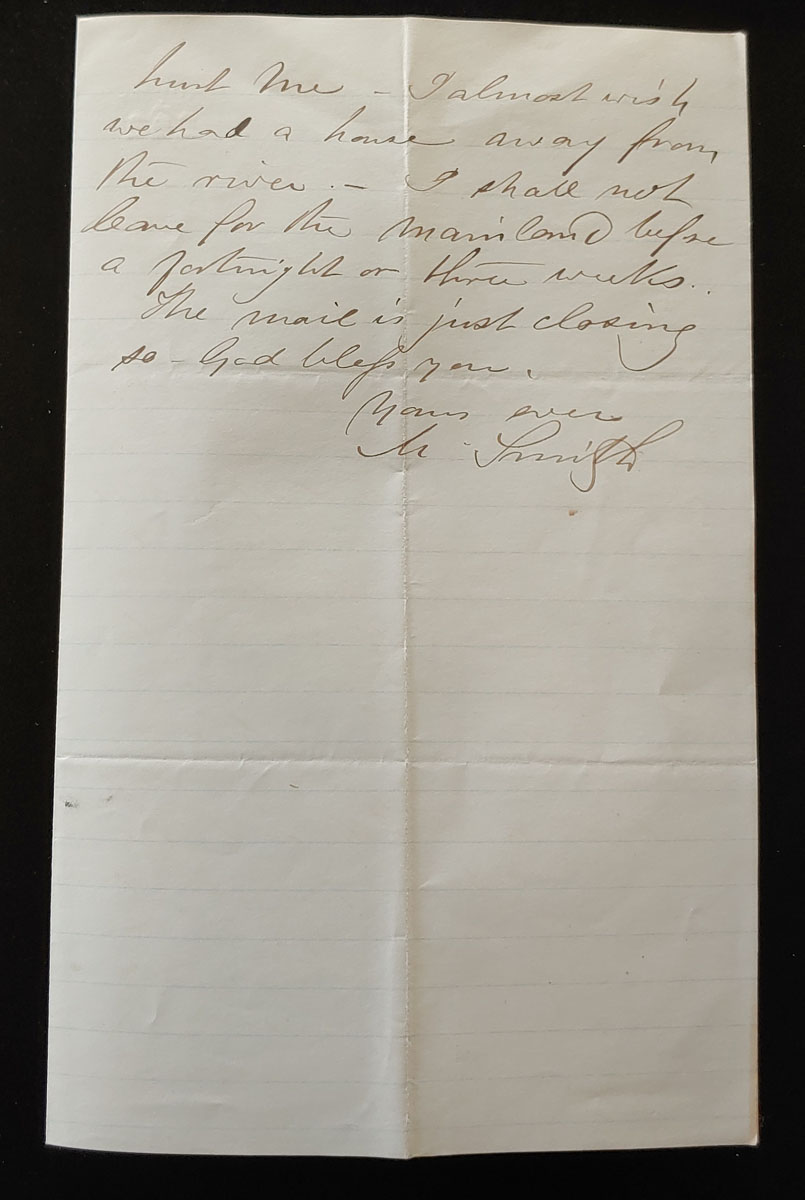 hurt me – I almost wish
we had a house away from
the river. – I shall not
leave for the mainland before
a fortnight or three weeks..
The mail is just closing
so – God bless you.
Yours ever
M. Smith